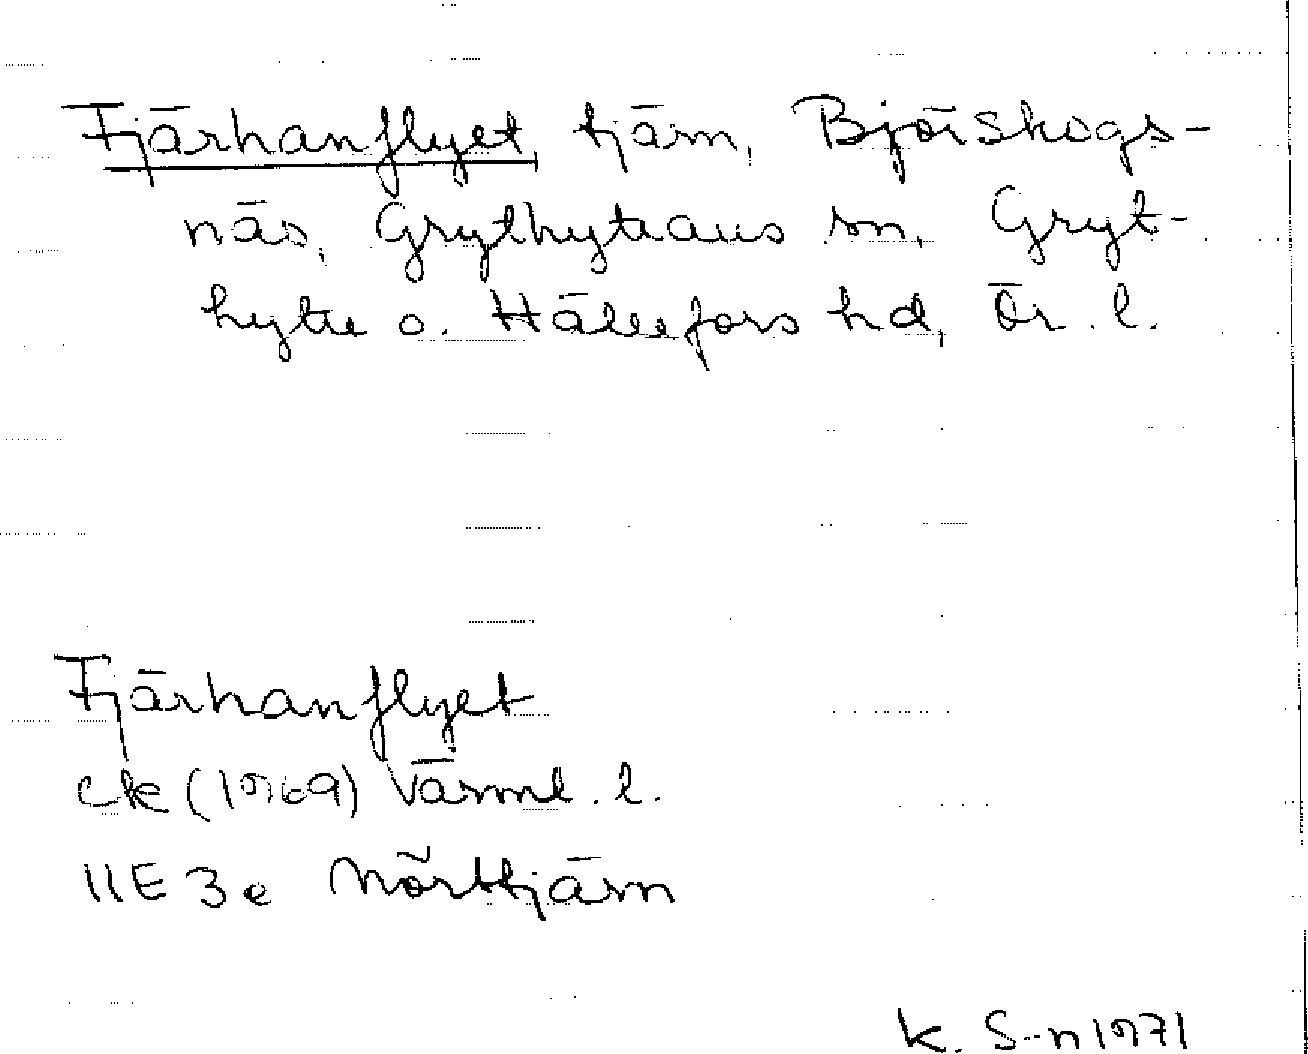 Fjärhanflyet, tjärn, Björskogs-
näs, Grythyttans sn, Gryt-
hytte o. Hällefors hd, Ör. l.
Fjärhanflyet
ek (1969) Värml. l.
11E 3e Mörttjärn
K. S-n 1971